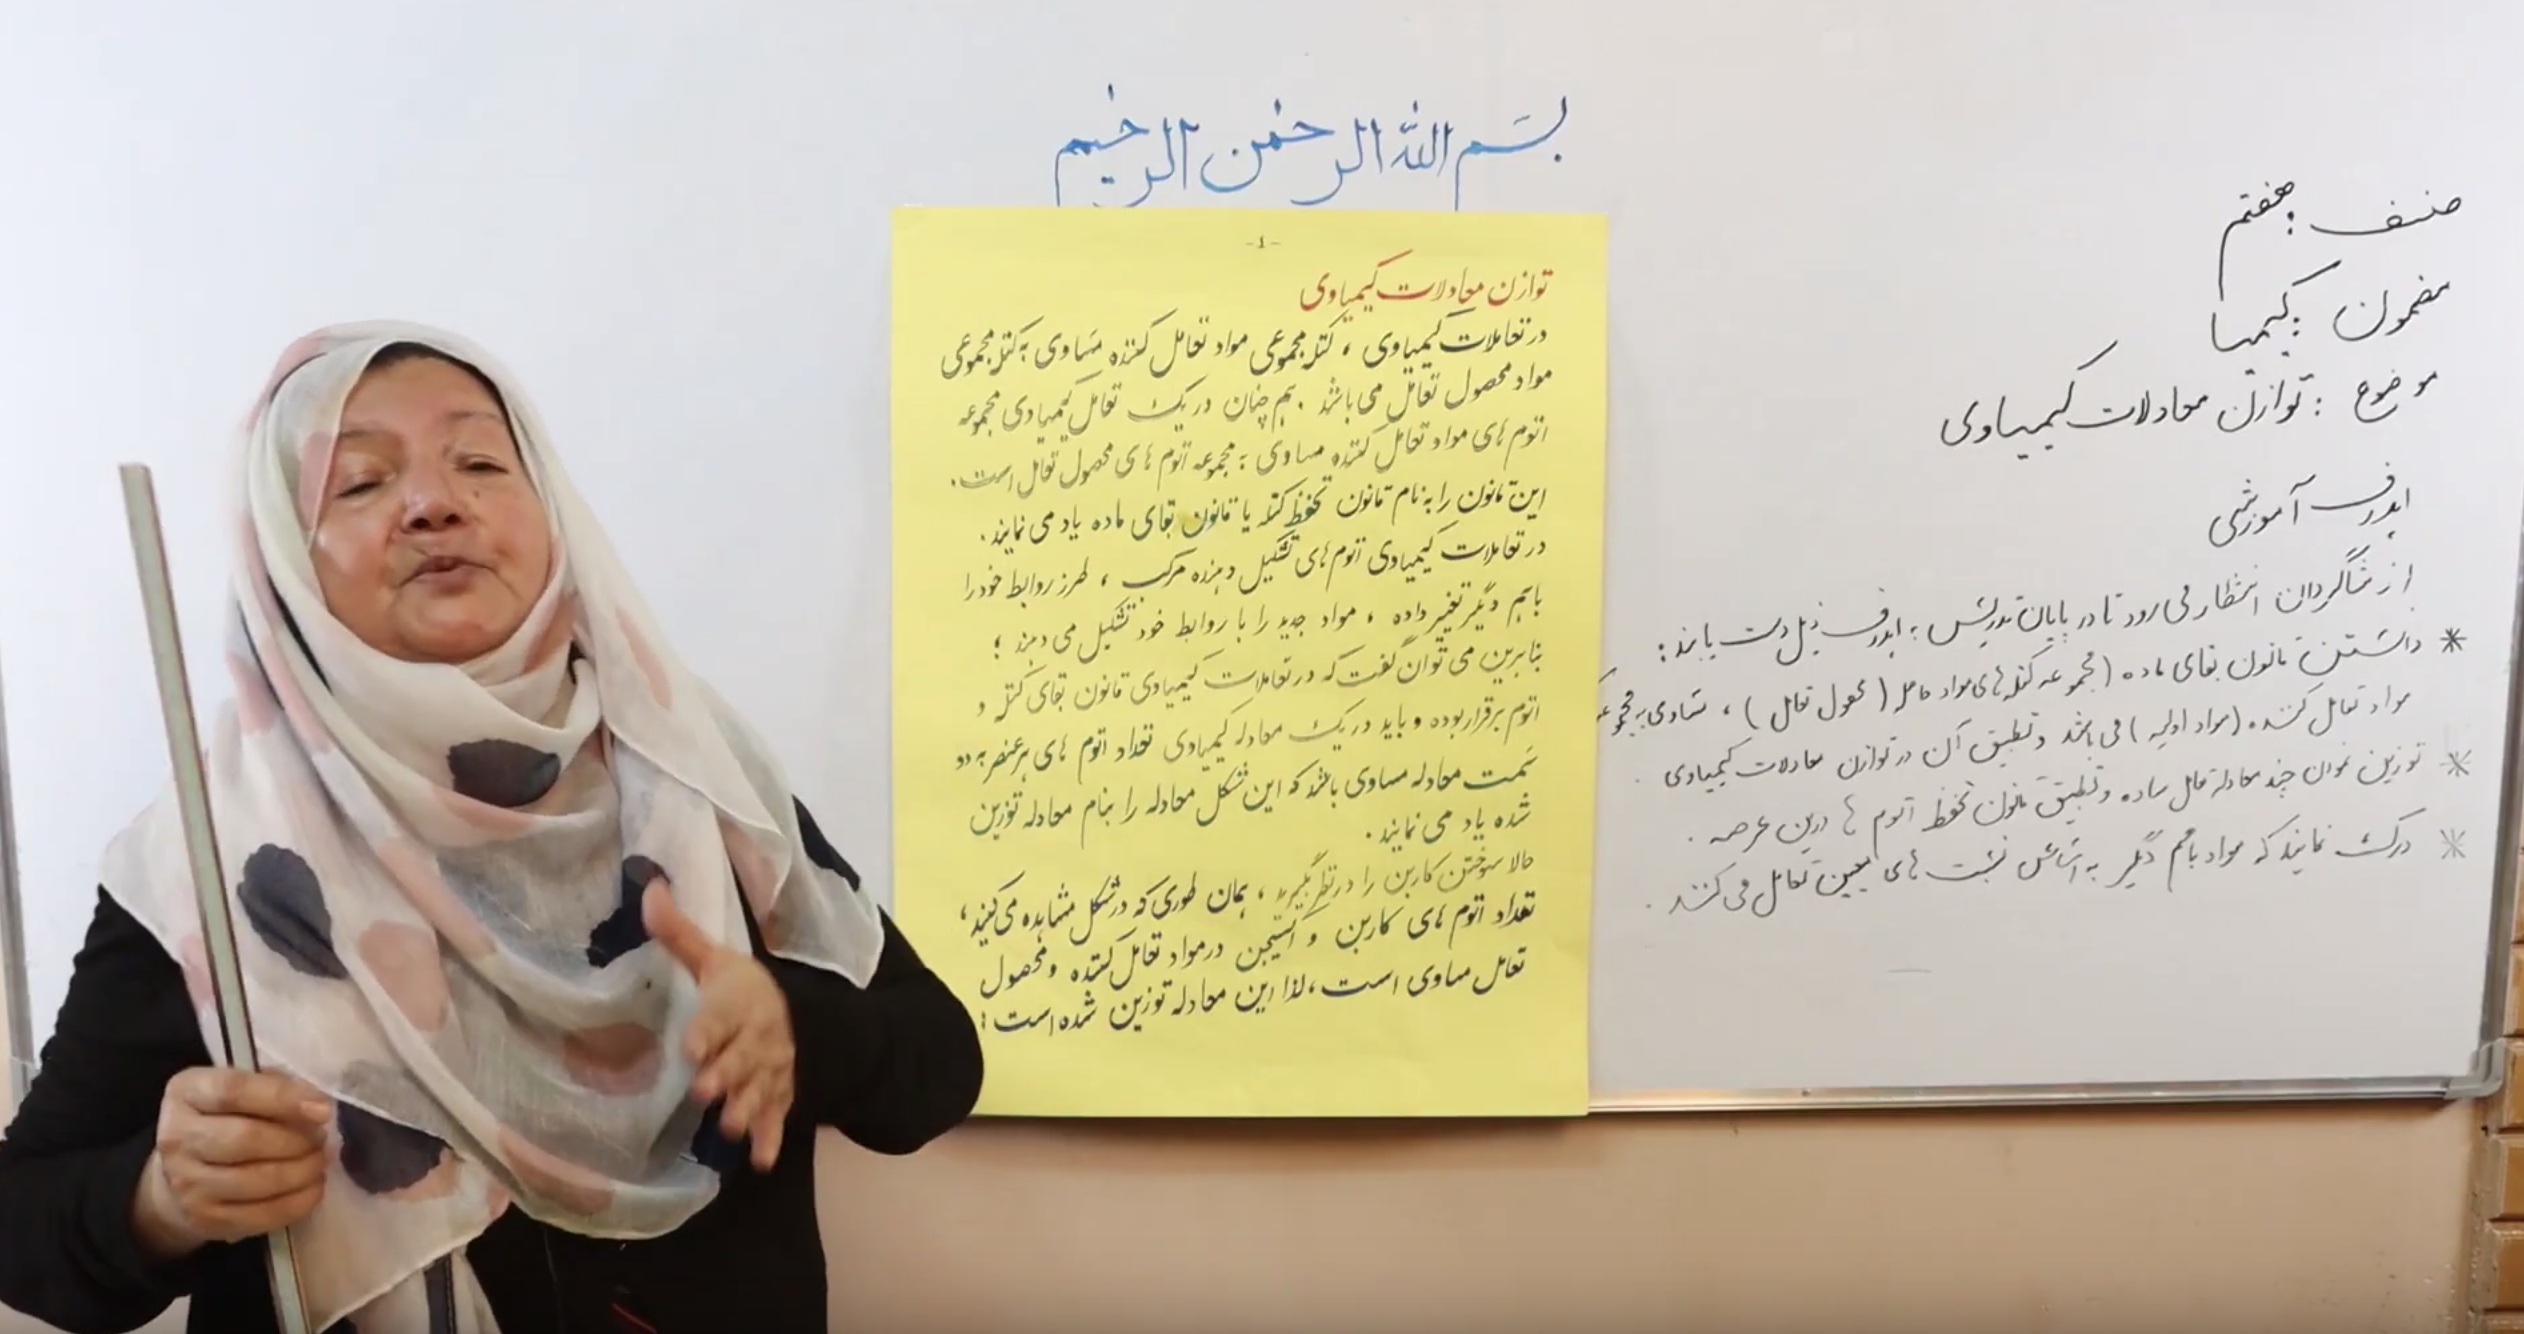 بسم الله الرحمن الرحیم
صنف : هفتم
مضمون : کیمیا
موضوع : توازن معادلات کیمیاوی
اهداف آموزشی
از شاگردان انتظار می رود تا در پایان تدریس به اهداف ذیل دست یابند :
* دانستن قانون بقای ماده ( مجموعه کتله های مواد حاصل ( محصول تعامل ) ، مساوی به مجموعه
مواد تعامل کننده ( مواد اولیه ) می باشد و تطبیق آن در توازن معادلات کیمیاوی .
* توزین نمودن چند معادله ساده و تطبیق قانون تحفظ اتوم ها درین عرصه .
* درک نمایند که مواد باهم دیگر به اساس نسبت های معین تعامل می کنند .
-1-
توازن معادلات کیمیاوی
در تعاملات کیمیاوی ، کتله مجموعی مواد تعامل کننده مساوی به کتله مجموعی
مواد محصول تعامل می باشد . هم چنان در یک تعامل کیمیاوی مجموعه
اتوم های مواد تعامل کننده مساوی به مجموعه اتوم های محصول تعامل است .
این قانون را به نام قانون تحفظ کتله یا قانون بقای ماده یاد می نمایند .
در تعاملات کیمیاوی اتوم های تشکیل دهنده مرکب ، طرز روابط خود را
باهم دیگر تغییر داده ، مواد جدید را با روابط خود تشکیل می دهند ؛
بنابرین می توان گفت که در تعاملات کیمیاوی قانون بقای کتله و
اتوم برقرار بوده و باید در یک معادله کیمیاوی تعداد اتوم های هر عنصر به دو
سمت معادله مساوی باشد که این شکل معادله را بنام معادله توزین
شده یاد می نمایند .
حالا سوختن کاربن را در نظر بگیرید ، همان طوری که در شکل مشاهده می کنید ،
تعداد اتوم های کاربن و اکسیجن در مواد تعامل کننده و محصول
تعامل مساوی است ، لذا این معادله توزین شده است :